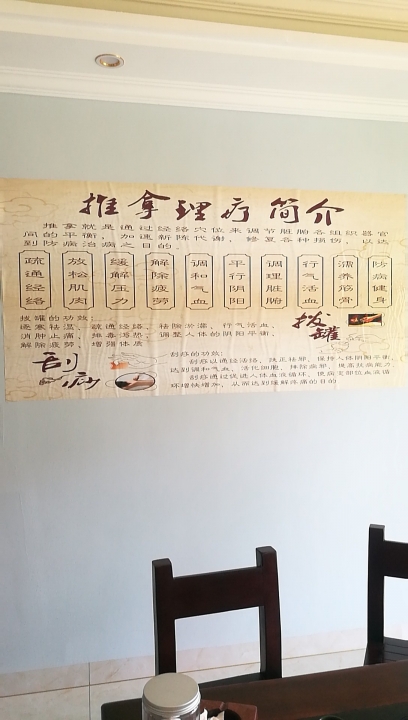 推拿理疗简介
推拿就是通过经络穴位来调节脏腑各组织器官
间的平衡，加速新陈代谢，修复各种损伤，以达
到防病治病之目的。
疏通经络
放松肌肉
缓解压力
解除疲劳
调和气血
平行阴阳
调理脏腑
行气活血
濡养筋骨
防病健身
拔罐的功效：
逐寒祛湿、疏通经络、祛除淤滞、行气活血、
消肿止痛、排毒泻热、调整人体的阴阳平衡、
解除疲劳、增强体质
拔罐
刮痧
刮痧的功效：
刮痧以通经活络、扶正祛邪、保持人体阴阳平衡
达到调和气血、活化细胞、排除病邪、提高抗病能力
刮痧通过促进人体血液循环、使病变部位血液循
环增快增加，从而达到缓解疼痛的目的